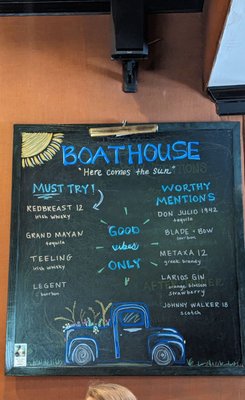 BOATHOUSE
"Here comes the sun"
MUST TRY!
REDBREAST 12
irish whisky
GRAND MAYAN
tequila
TEELING
irish whisky
LEGENT
bourbon
GOOD
vibes
ONLY
WORTHY
MENTIONS
DON JULIO 1942
tequila
BLADE + BOW
bourbon
METAXA 12
greek brandy
LARIOS GIN
orange blossom
strawberry
JOHNNY WALKER 18
scotch